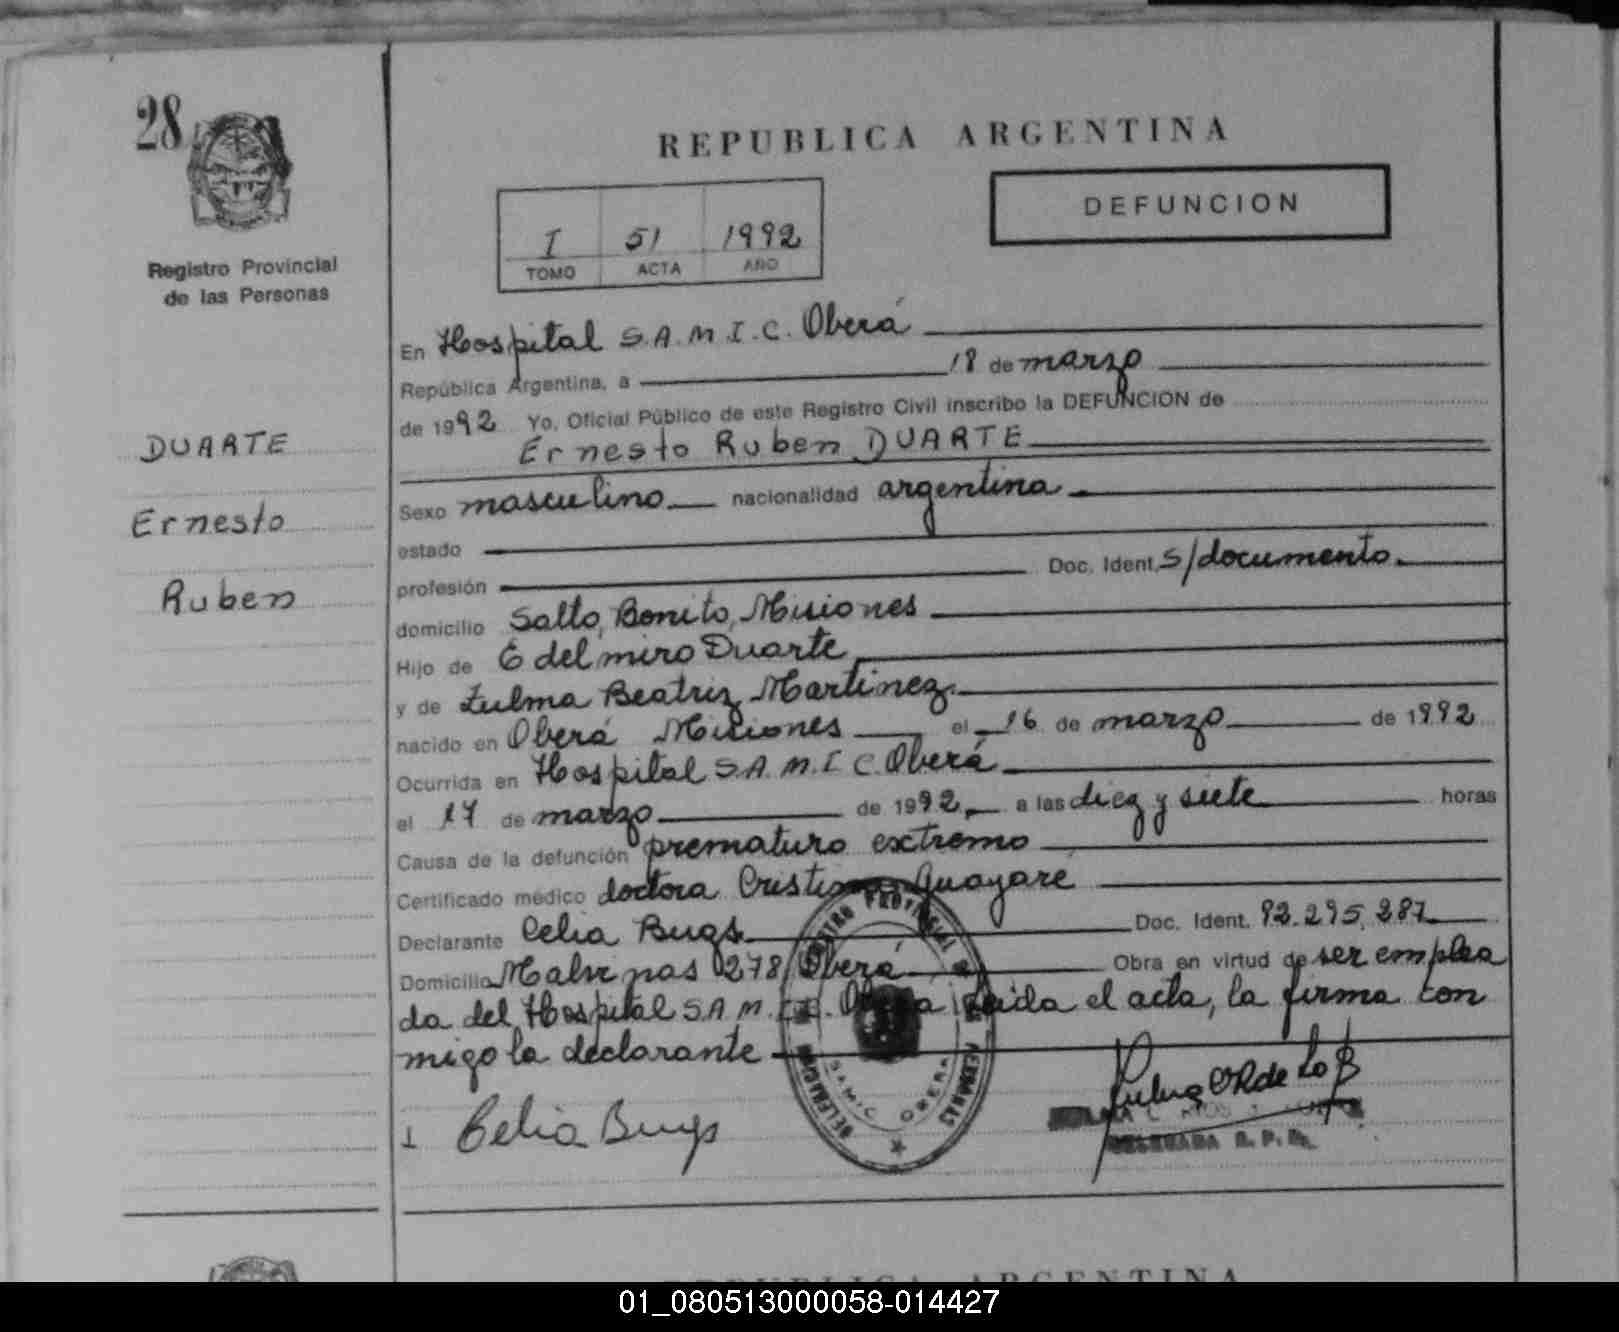 28
REPUBLICA ARGENTINA
DEFUNCION
I 51 1992
TOMO ACTA AÑO
Registro Provincial
de las Personas
DUARTE
Ernesto
Ruben
En Hospital S.A.M.I.C. Oberá
República Argentina, a 18 de marzo
de 1992 Yo, Oficial Público de este Registro Civil inscribo la DEFUNCION de
Ernesto Ruben DUARTE
Sexo masculino nacionalidad argentina
estado
profesión Doc. Ident. s/documento.
domicilio Salto, Bonito, Misiones
Hijo de Edelmiro Duarte
y de Zulma Beatriz Martinez.
nacido en Oberá Misiones el 16 de marzo de 1992
Ocurrida en Hospital S.A.M.I.C. Oberá
el 17 de marzo de 1992, a las diez y siete horas
Causa de la defunción prematuro extremo
Certificado médico doctora Cristina Guayaré
Declarante Celia Bugs. Doc. Ident. 92.295.287
Domicilio Malvinas 278, Oberá Obra en virtud de ser emplea
da del Hospital S.A.M.I.C. Oberá Leida el acta, la firma con
migo la declarante
Celia Bugs
REGISTRO PROVINCIAL DE LAS PERSONAS
DELEGACION
SAMIC OBERA
DELEGADA R. P. P.
REPUBLICA ARGENTINA
01_080513000058-014427